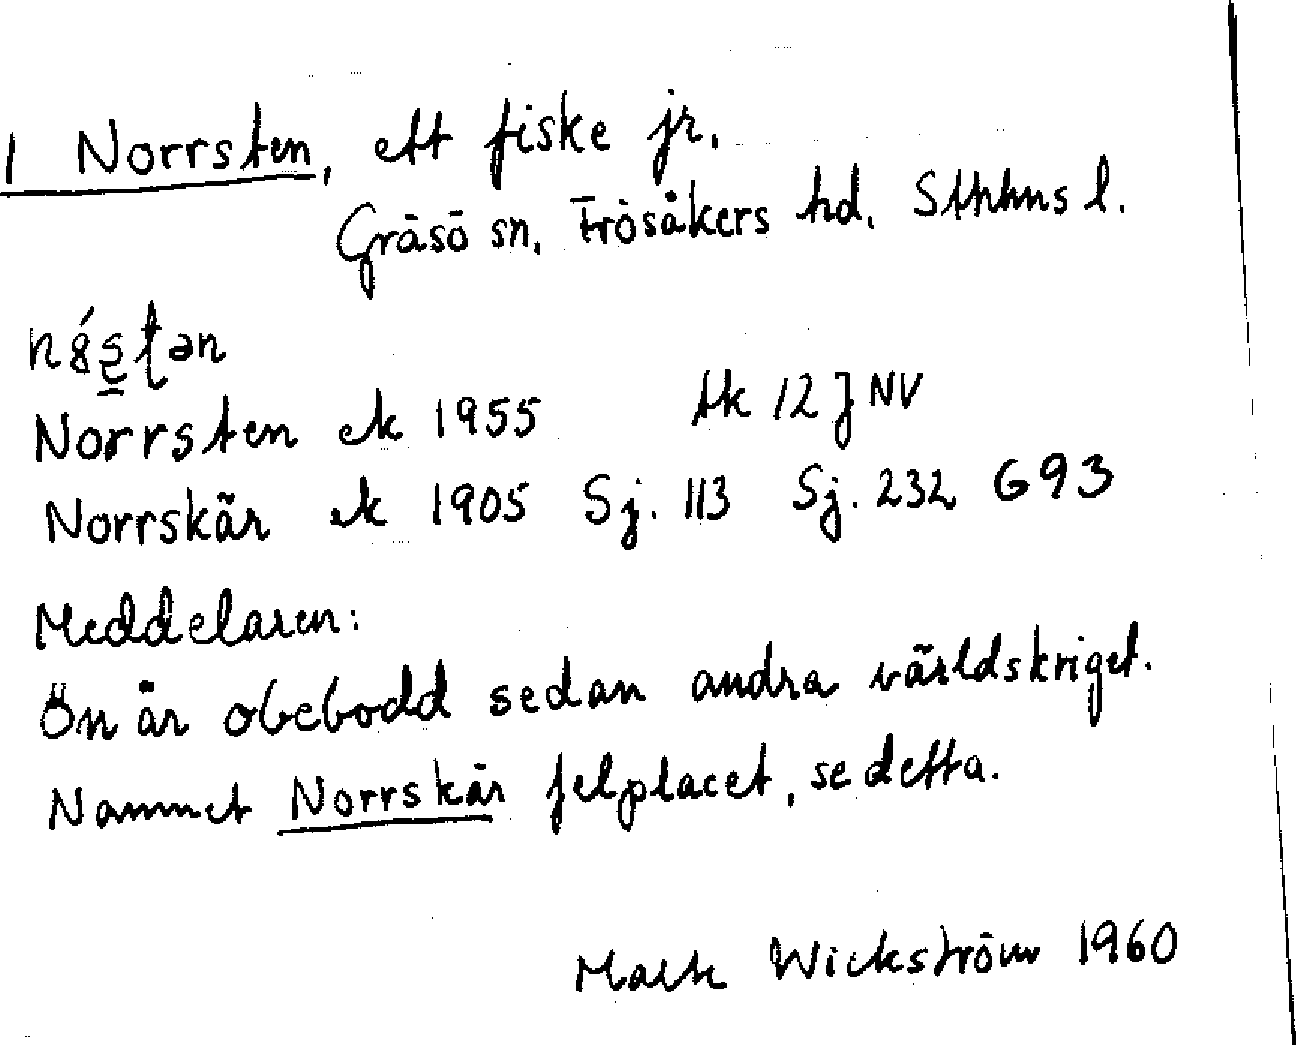 1 Norrsten, ett fiske jr.
Gräsö sn. Frösåkers hd. Sthlms l.
Norrsten ek 1955 tk 12 J NV
Norrskär ek 1905 Sj. 113 Sj. 232 G93
Meddelaren:
Ön är obebodd sedan andra världskriget.
Namnet Norrskär felplacet, se detta.
Wickström 1960